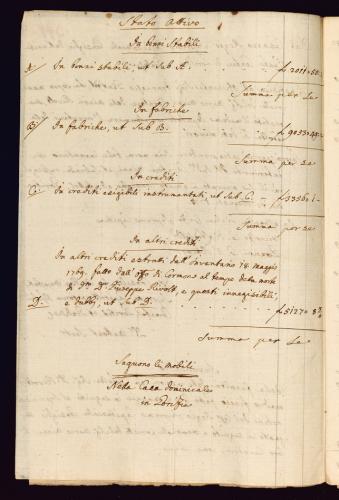 Stato Attivo
In beni Stabili
A/ In beni stabili, ut Sub A.
Summa per se
In fabriche
B/ In fabriche, ut Sub B.
Summa per se
In crediti
C. In crediti esigibili instrumentati, ut Sub C.
Summa per se
In altri crediti
In altri crediti estratti dall'Inventario 18. Maggio
1769. fatto dall' di Cormons al tempo della morte
di Giuseppe, e questi innesigibili,
D. e dubbi, ut Sub D.
Summa per se
Sequono li mobili
Nella Casa dominicale
in